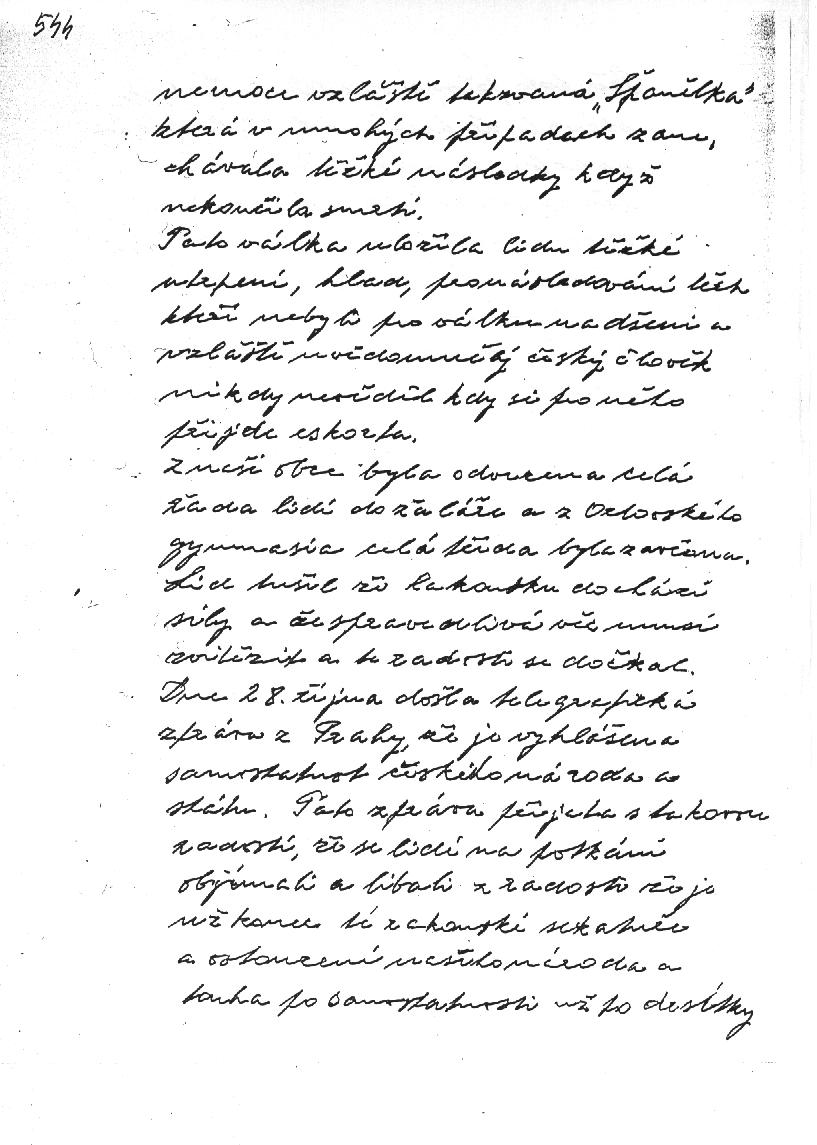 544
nemoce vzláště takzvaná „Španělka"
která v mnohých případech zane,
chávala těžké následky když
nekončila smrtí.
Tato válka uložila lidu těžké
utrpení, hlad, pronásledování těch
kteří nebyli pro válku nadšeni a
vzláště uvědomnělý český člověk
nikdy nevěděl kdy si pro něho
přijde eskorta.
Z naší obce byla odvezena celá
řada lidí do žaláře a z Orlovského
gymnasia celá třída byla zavčena.
Lid tušil že Rakousku dochází
síly a že spravedlivá věc musí
zvítězit a té radosti se dočkal.
Dne 28. října došla telegrafická
zpráva z Prahy, že je vyhlášena
samostatnost českého národa a
státu. Tato zpráva přijata s takovou
radostí, že se lidé na potkání
objímali a líbali z radosti že je
už konec té rakouské
a osvobození našeho národa a
touha po samostatnosti už po desítky